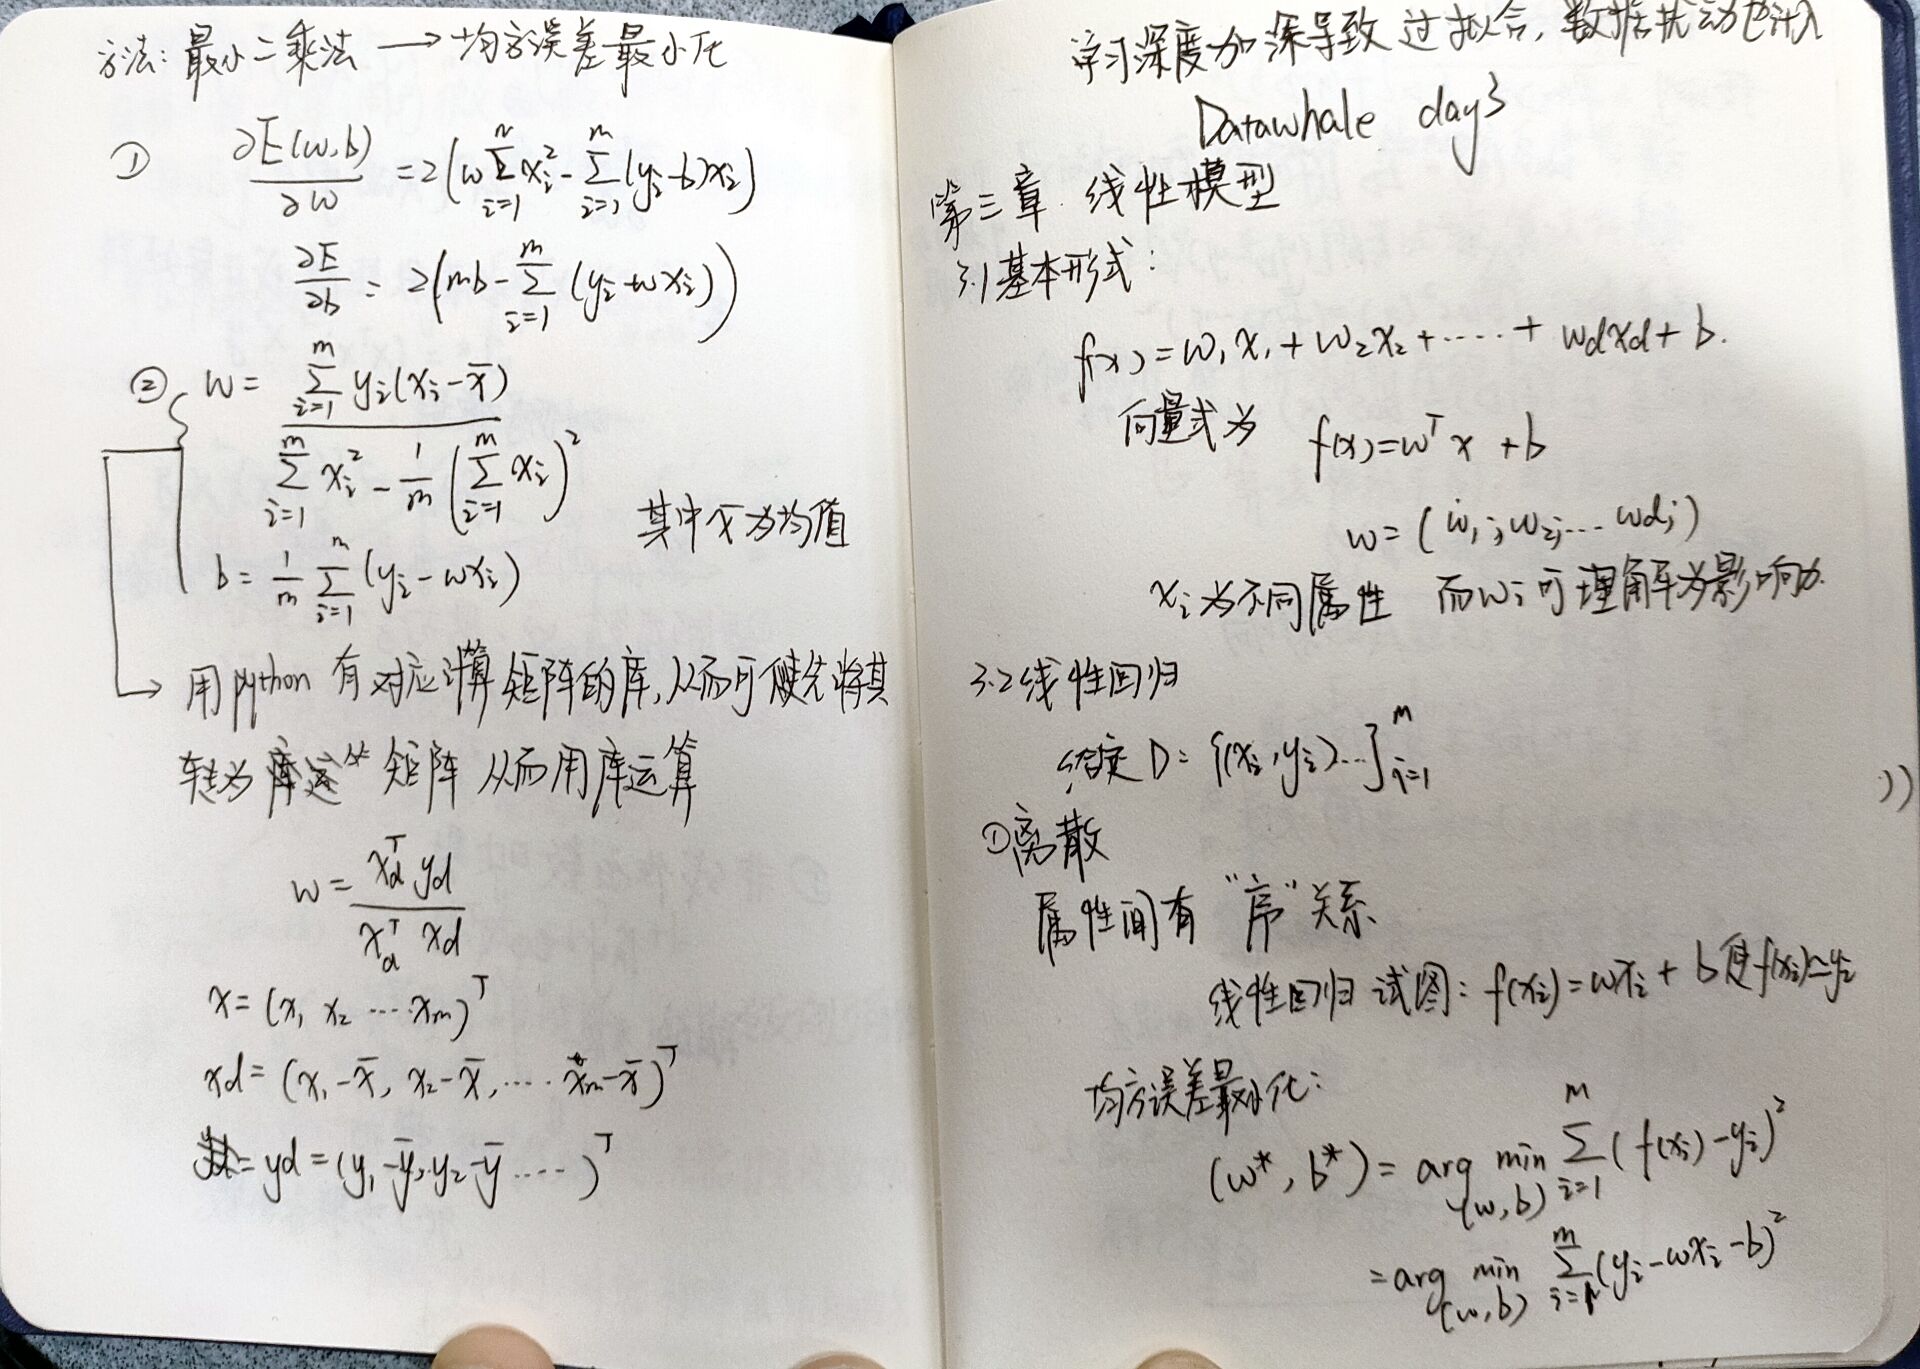 方法: 最小二乘法 → 均方误差最小化
① ∂E(w,b)/∂w = 2(w∑_{i=1}^{n} x_i² - ∑_{i=1}^{m} (y_i - b)x_i)
∂E/∂b = 2(mb - ∑_{i=1}^{m} (y_i - wx_i))
② w = ∑_{i=1}^{m} y_i(x_i - x̄) / (∑_{i=1}^{m} x_i² - 1/m (∑_{i=1}^{m} x_i)²)
其中 x̄ 为均值
b = 1/m ∑_{i=1}^{m} (y_i - wx_i)
用python 有对应计算矩阵的库,从而可 先将其
转为 矩阵 从而用库运算
w = x_d^T y_d / x_d^T x_d
x = (x_1 x_2 ⋯ x_m)^T
xd = (x_1 - x̄, x_2 - x̄, ⋯⋅ x_m - x̄)^T
= yd = (y_1 - ȳ, y_2 - ȳ ⋯⋅)^T
学习深度加深导致过拟合, 数据扰动也计入
Datawhale day3
第三章 线性模型
3.1 基本形式:
f(x) = w_1x_1 + w_2x_2 + ⋯⋅⋅ + w_dx_d + b.
向量式为 f(x) = w^T x + b
w = (w_1; w_2; ⋯ w_d;)
x_i 为不同属性 而w_i可理解为影响力.
3.2 线性回归
给定 D = {(x_i, y_i)…}_{i=1}^{m}
①离散
属性间有 “序”关系
线性回归 试图: f(x_i) = wx_i + b 使f(x_i)≃y_i
均方误差最小化:
(w*, b*) = arg min_{(w,b)} ∑_{i=1}^{m} (f(x_i) - y_i)²
= arg min_{(w,b)} ∑_{i=1}^{m} (y_i - wx_i - b)²